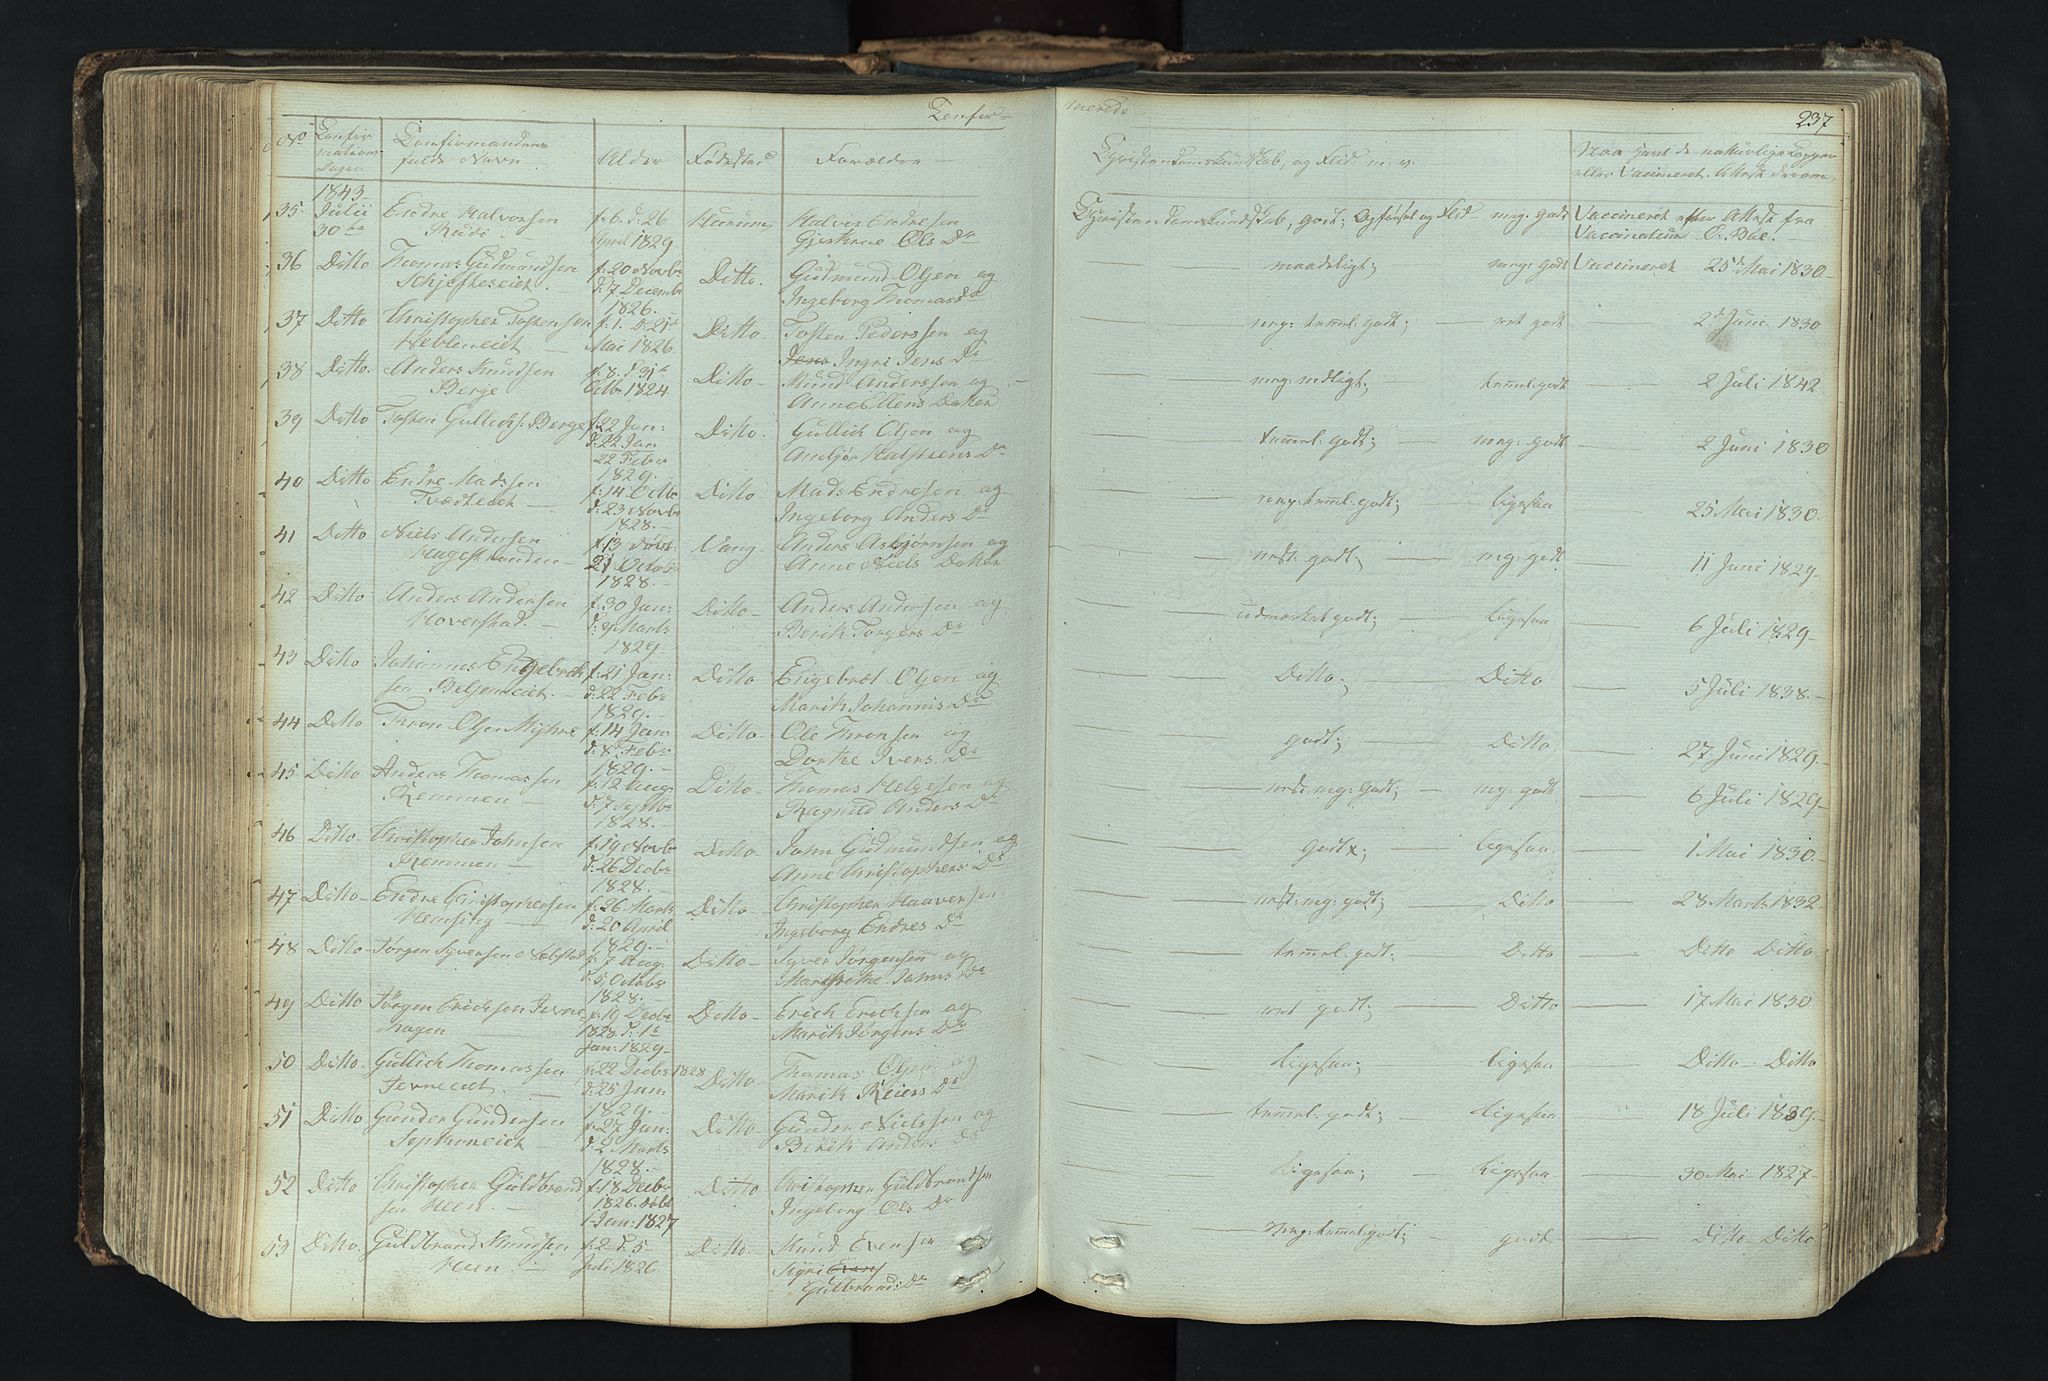 Confir-
merede
237
No
Confir
mations
Dagen
Confirmandens
fulde Navn
Alder
Fødested
Forældre
Christendomskundskab, og Flid m. v.
naturlige Kopper
eller Vaccineret.
1843
35 Julii Endre Halvorsen f. 6. d. 26 Halvor Endresen Christendomskundskab, godt; Opførsel og Flid meg. godt Vaccineret efter Attest fra
30te April 1829 Gjertrue Ols Dr Vaccinateur O. Boe.
36 Ditto Thomas Gudmundsen f. 20 Novbr Ditto. Gudmund Olsen og maadeligt; meg. godt Vaccineret 25 Mai 1830
d. 7 Decembr Ingeborg Thomas Dr
1826.
37 Ditto Christopher Tostensen f. 1. d. 21 Ditto Tosten Pedersen og meg. tmml. godt; godt 2 Juni 1830
Mai 1826. Jens Ingri Jens Dr
38 Ditto. Anders Knudsen f. 8. d. 31 Ditto Knud Anderssen og meg. mdligt; tmml. godt 2 Juli 1842
Berge Octbr 1824 Anne Ellens Datter
39 Ditto Tosten Gullichs: Berge f. 22 Jan: Ditto. Gullich Olsen og tmml. godt; meg. godt 2 Juni 1830
d. 22 Jan Halsteens Dr
22 Febr
1829.
40 Ditto Endre Madssen f. 14 Octbr Ditto Mads Endresen og meg. tmml. godt; ligesaa 25 Mai 1830.
d. 23 Novbr Ingeborg Anders Dr
1828.
41 Ditto Niels Andersen f. 13 Vang Anders Asbjørnsen og godt; meg. godt 11 Juni 1829
Hagestranden 21 Octobr Anne Niels Datter
1828.
42 Ditto Anders Andersen f. 30 Jan: Ditto Anders Andersen og udmærket godt; ligesaa 6 Juli 1829
Hoverstad. Marts Berit Torgers Dr
1829
43 Ditto Johannes Engebret f. 21 Jan: Ditto Engebret Olsen og Ditto; Ditto 5 Juli 1838.
sen d. 22 Febr Marit Johannis Dr
1829.
44 Ditto Thron Olsen Myhre f. 14 Jan: Ditto Ole Thronsen og godt; Ditto 27 Juni 1829
d. 8 Febr Dorthe Ivers Dr
1829.
45 Ditto Anders Thomassen f. 12 Aug. Ditto Thomas Helgesen og meg: godt; meg: godt 6 Juli 1829
Remmen d. 7 Septbr Ragnild Anders Dr
1828.
46 Ditto Christopher Johnsen f. 19 Novbr Ditto John Gudmundsen og godt; ligesaa 1 Mai 1830.
Remmen d. 26 Decbr Anne Christophers Dr
1828.
47 Ditto Endre Christophersen f. 26 Marts Ditto Christopher Haavensen meg: godt; Ditto 28 Marts 1832
Hemsing d. 20 April Ingeborg Endres Dr
1829.
48 Ditto Jørgen Syversen f. 7 Aug. Ditto Syver Jørgensen og tmml. godt; Ditto Ditto Ditto
d. 5 Octobr Johns Dr
1828.
49 Ditto Jørgen Ericksen f. 19 Decbr Ditto Erich Erichsen og godt; Ditto 17 Mai 1830
1828 d. 1 Marit Jørgens Dr
Jan: 1829
50 Ditto Gullich Thomassen f. 22 Decbr 1828 Ditto Thomas Olsen og ligesaa; ligesaa Ditto Ditto
d. 25 Jan: Marit Reiers Dr
1829.
51 Ditto Gunder Gundersen f. 27 Jan: Ditto Gunder Nielssen og tmml. godt; ligesaa 18 Juli 1839.
d. 2 Marts Berith Anders Dr
1828.
52 Ditto Christopher Guldbrand f. 18 Decbr Ditto Christopher Guldbrandsen ligesaa; ligesaa 30 Mai 1827
sen Heen. 1826. døbt Ingeborg Ols Dr
1 Jan: 1827
53 Ditto. Guldbrand Knudsen f. 2 d. 5 Ditto Knud Evensen meg. tmml. godt; godt Ditto Ditto
Heen. Juli 1826 Sigri
Gulbrands: Dr